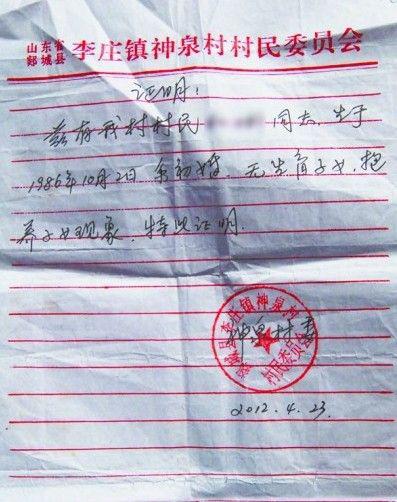 山东省
郯城县
李庄镇神泉村村民委员会
证明:
兹有我村村民 同志,生于
1986年10月2日 系初婚,无生育子女,抱
养子女现象,特此证明.
郯城县李庄镇神泉村
神泉村委
村民委员会
2012.4.23.